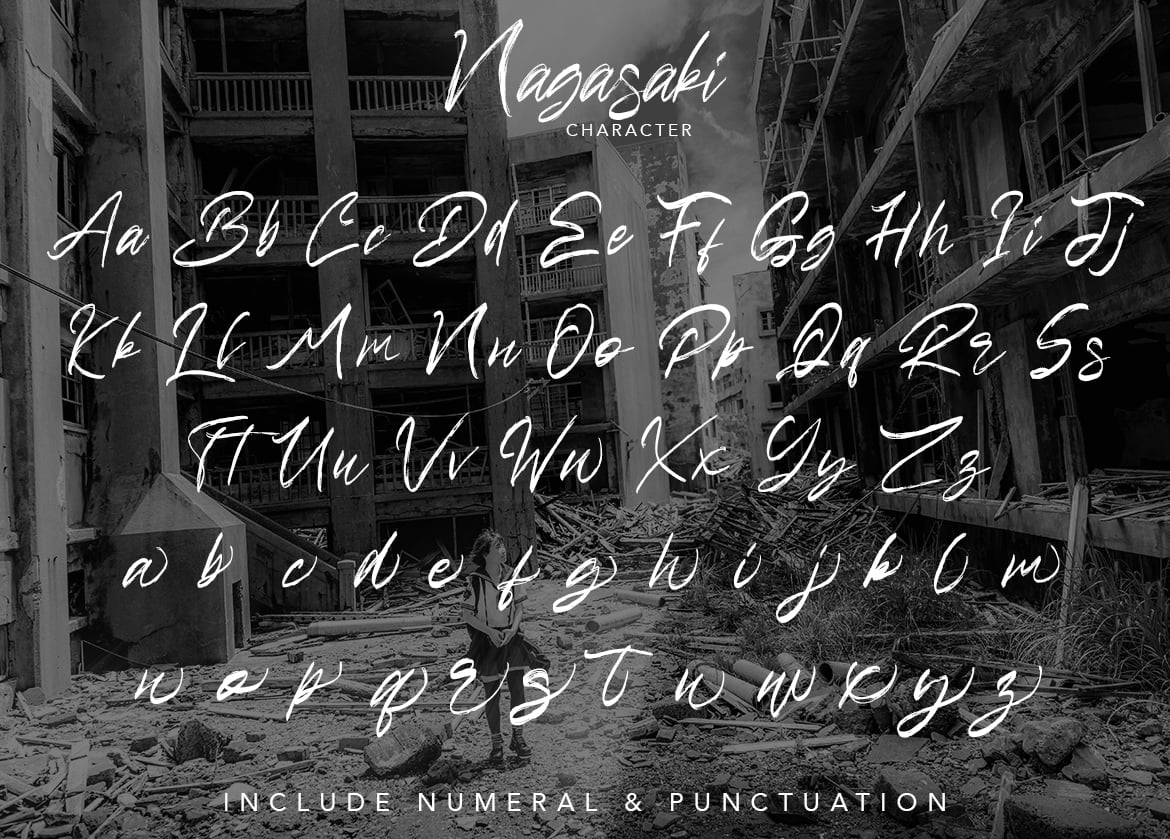 Nagasaki
CHARACTER
Aa Bb Cc Dd Ee Ff Gg Hh Ii Jj
Kk Ll Mm Nn Oo Pp Qq Rr Ss
Tt Uu Vv Ww Xx Yy Zz
a b c d e f g h i j k l m
n o p q r s t u w x y z
INCLUDE NUMERAL & PUNCTUATION